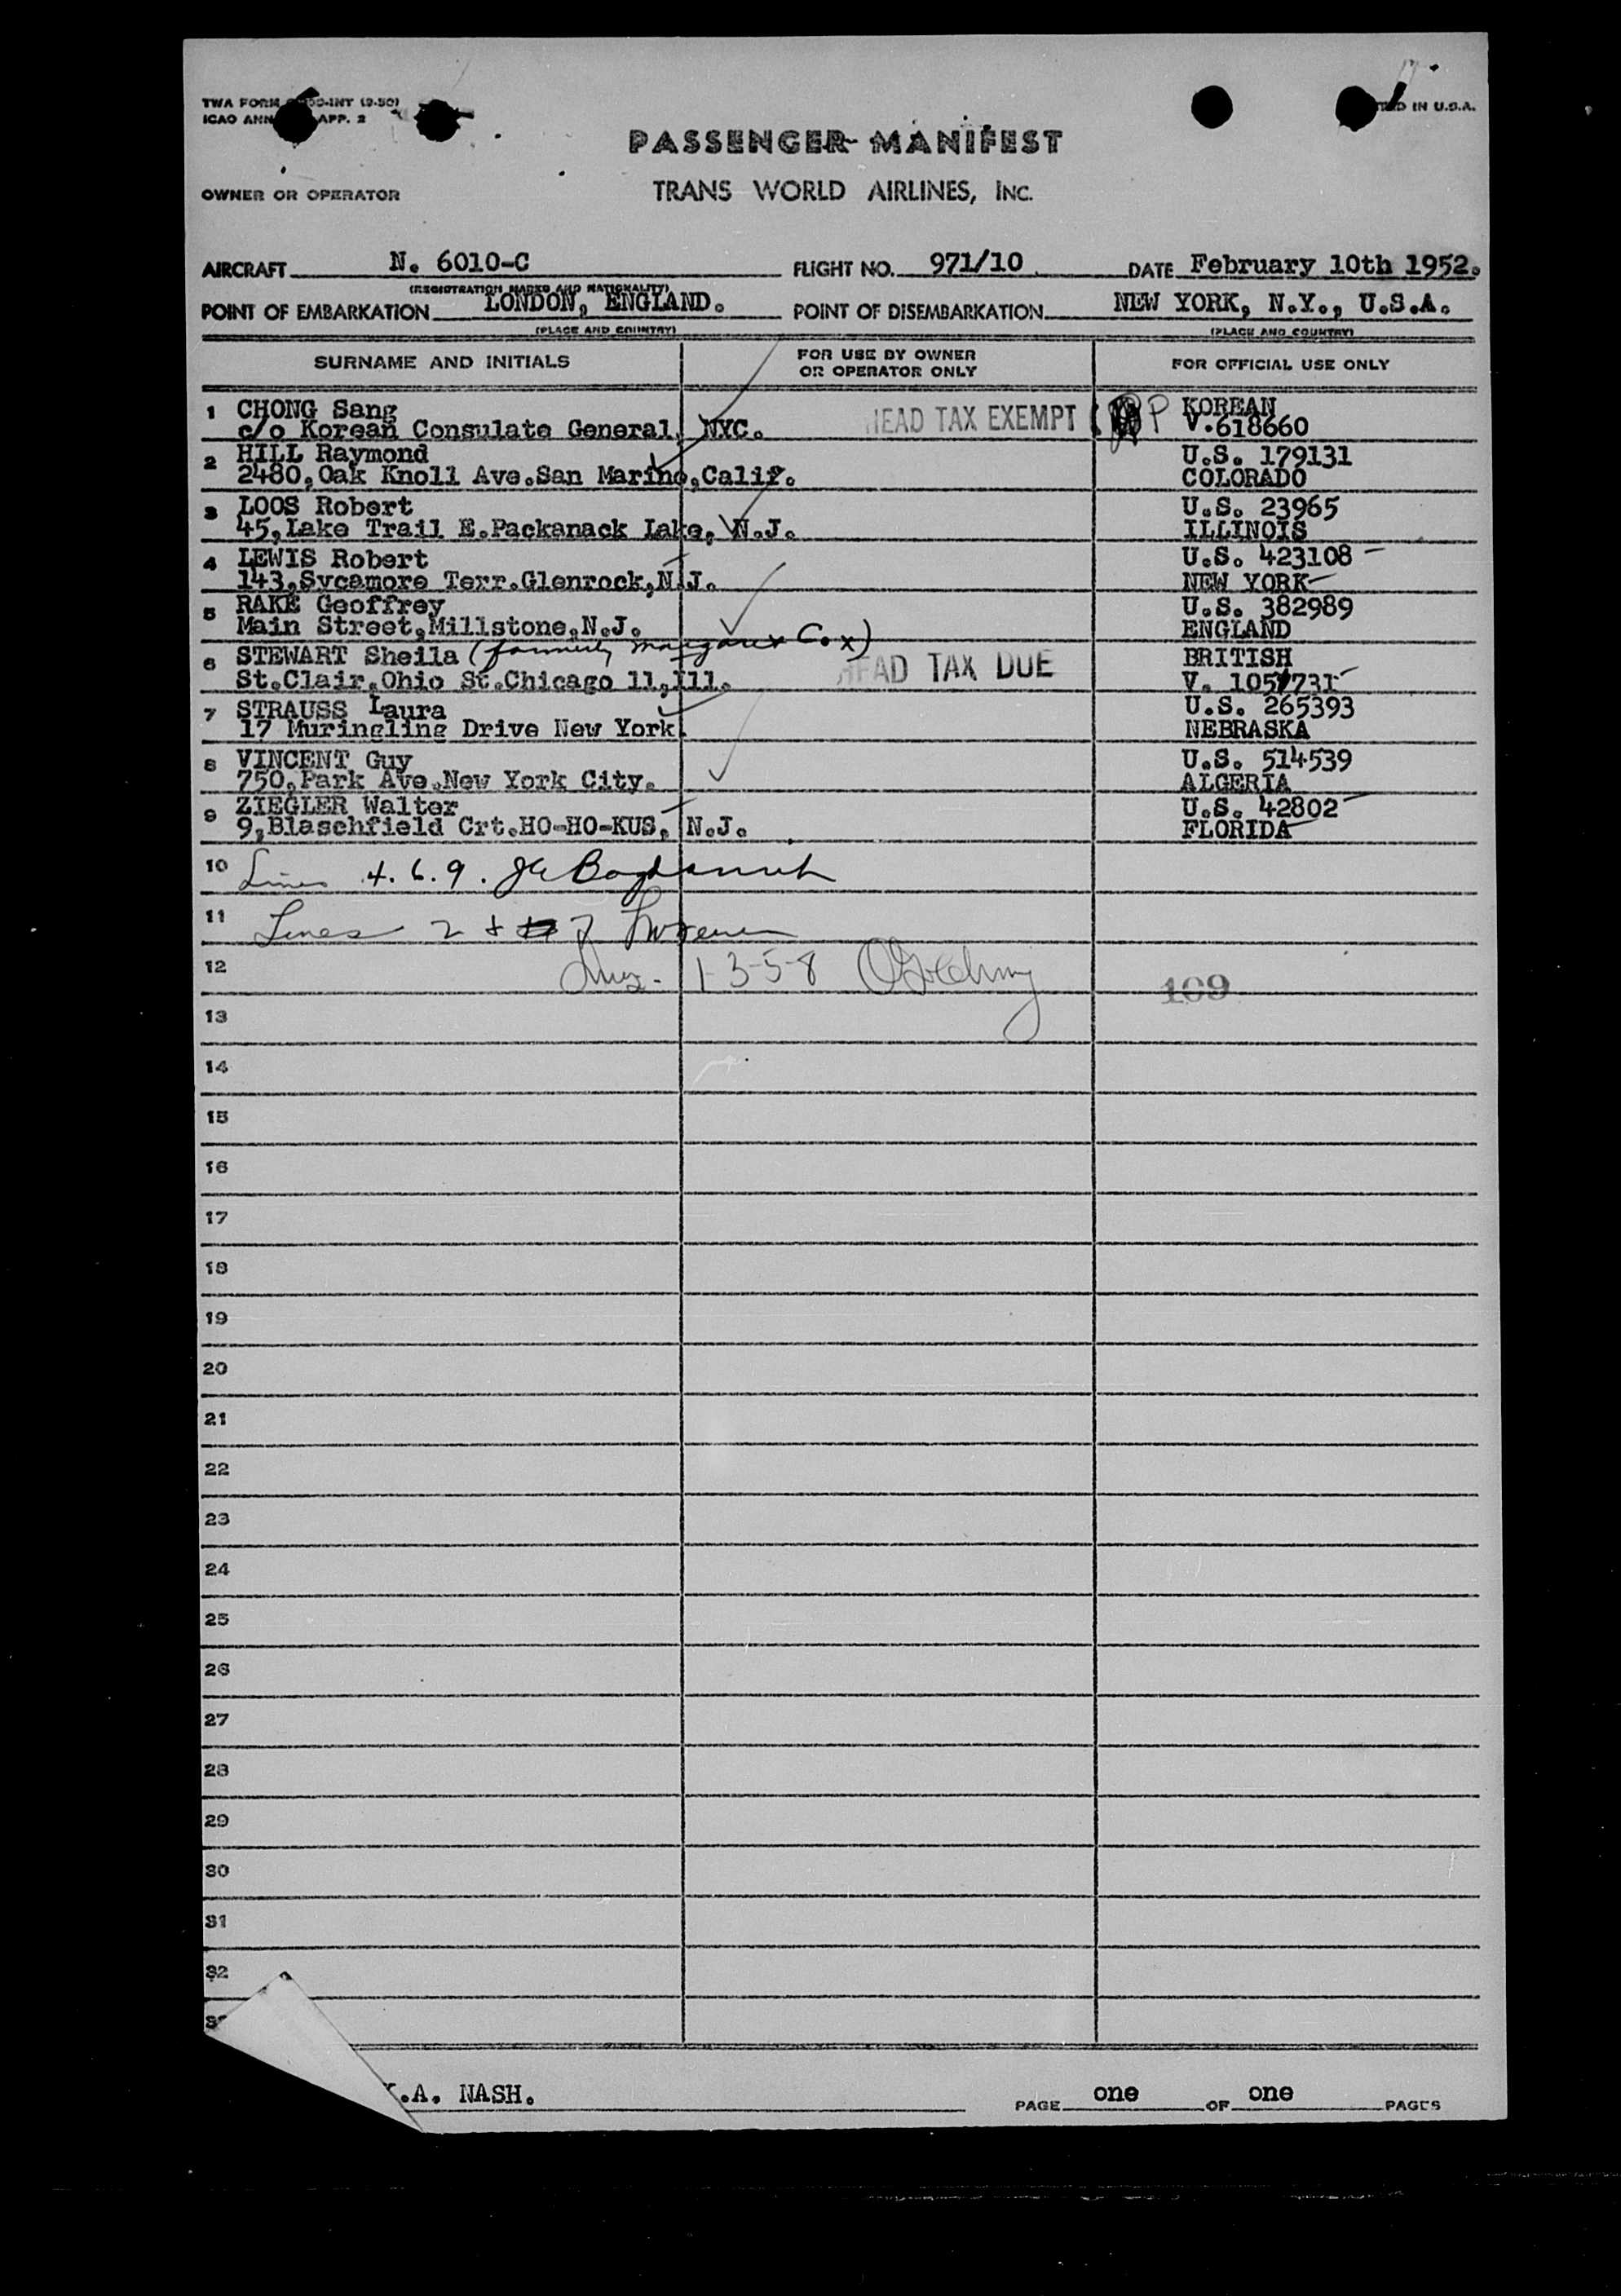 TWA FORM -INT (9-50)
ICAO ANN APP. 2
IN U.S.A.
PASSENGER MANIFEST
OWNER OR OPERATOR
TRANS WORLD AIRLINES, INC.
AIRCRAFT N. 6010-C FLIGHT NO. 971/10 DATE February 10th 1952.
(REGISTRATION MARKS AND NATIONALITY)
POINT OF EMBARKATION LONDON, ENGLAND. POINT OF DISEMBARKATION NEW YORK, N.Y., U.S.A.
(PLACE AND COUNTRY) (PLACE AND COUNTRY)
SURNAME AND INITIALS FOR USE BY OWNER OR OPERATOR ONLY FOR OFFICIAL USE ONLY
1 CHONG Sang HEAD TAX EXEMPT P KOREAN
c/o Korean Consulate General, NYC. V.618660
2 HILL Raymond U.S. 179131
2480,Oak Knoll Ave.San Marino,Calif. COLORADO
3 LOOS Robert U.S. 23965
45,Lake Trail E.Packanack Lake, N.J. ILLINOIS
4 LEWIS Robert U.S. 423108
143,Sycamore Terr.Glenrock,N.J. NEW YORK
5 RAKE Geoffrey U.S. 382989
Main Street,Millstone,N.J. ENGLAND
6 STEWART Sheila (formerly Margaret Cox) HEAD TAX DUE BRITISH
St.Clair,Ohio St.Chicago 11,Ill. V. 1051731
7 STRAUSS Laura U.S. 265393
17 Muringling Drive New York. NEBRASKA
8 VINCENT Guy U.S. 514539
750,Park Ave.New York City. ALGERIA
9 ZIEGLER Walter U.S. 42802
9,Blaschfield Crt.HO-HO-KUS, N.J. FLORIDA
10 Lines 4. 6. 9.
11 Lines 2 + 7
12 1-3-5-8 109
13
14
15
16
17
18
19
20
21
22
23
24
25
26
27
28
29
30
31
32
.A. NASH.
PAGE one OF one PAGES